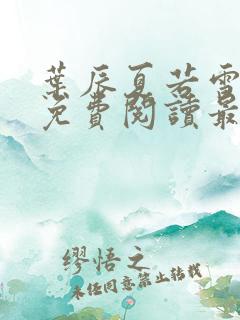 葉辰夏若雪
免費閱讀最
繆悟之
未經同意禁止轉載